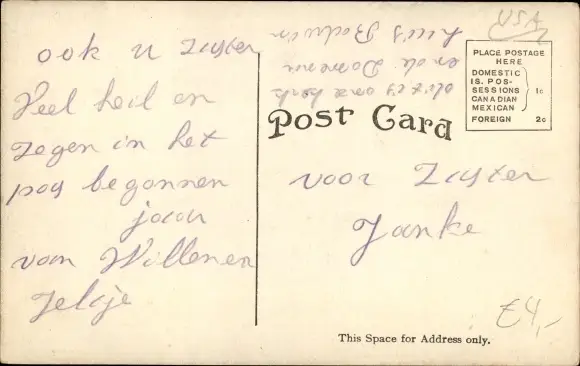 ook u zuster
Veel heil en
zegen in het
pas begonnen
jaar
van Willem en
Jeltje
dit is ons kerk
en de Domeni
huis
USA
PLACE POSTAGE
HERE
DOMESTIC
IS. POS-
SESSIONS
CANADIAN
MEXICAN
1c
FOREIGN 2c
Post Card
voor Zuster
Janke
£4,-
This Space for Address only.